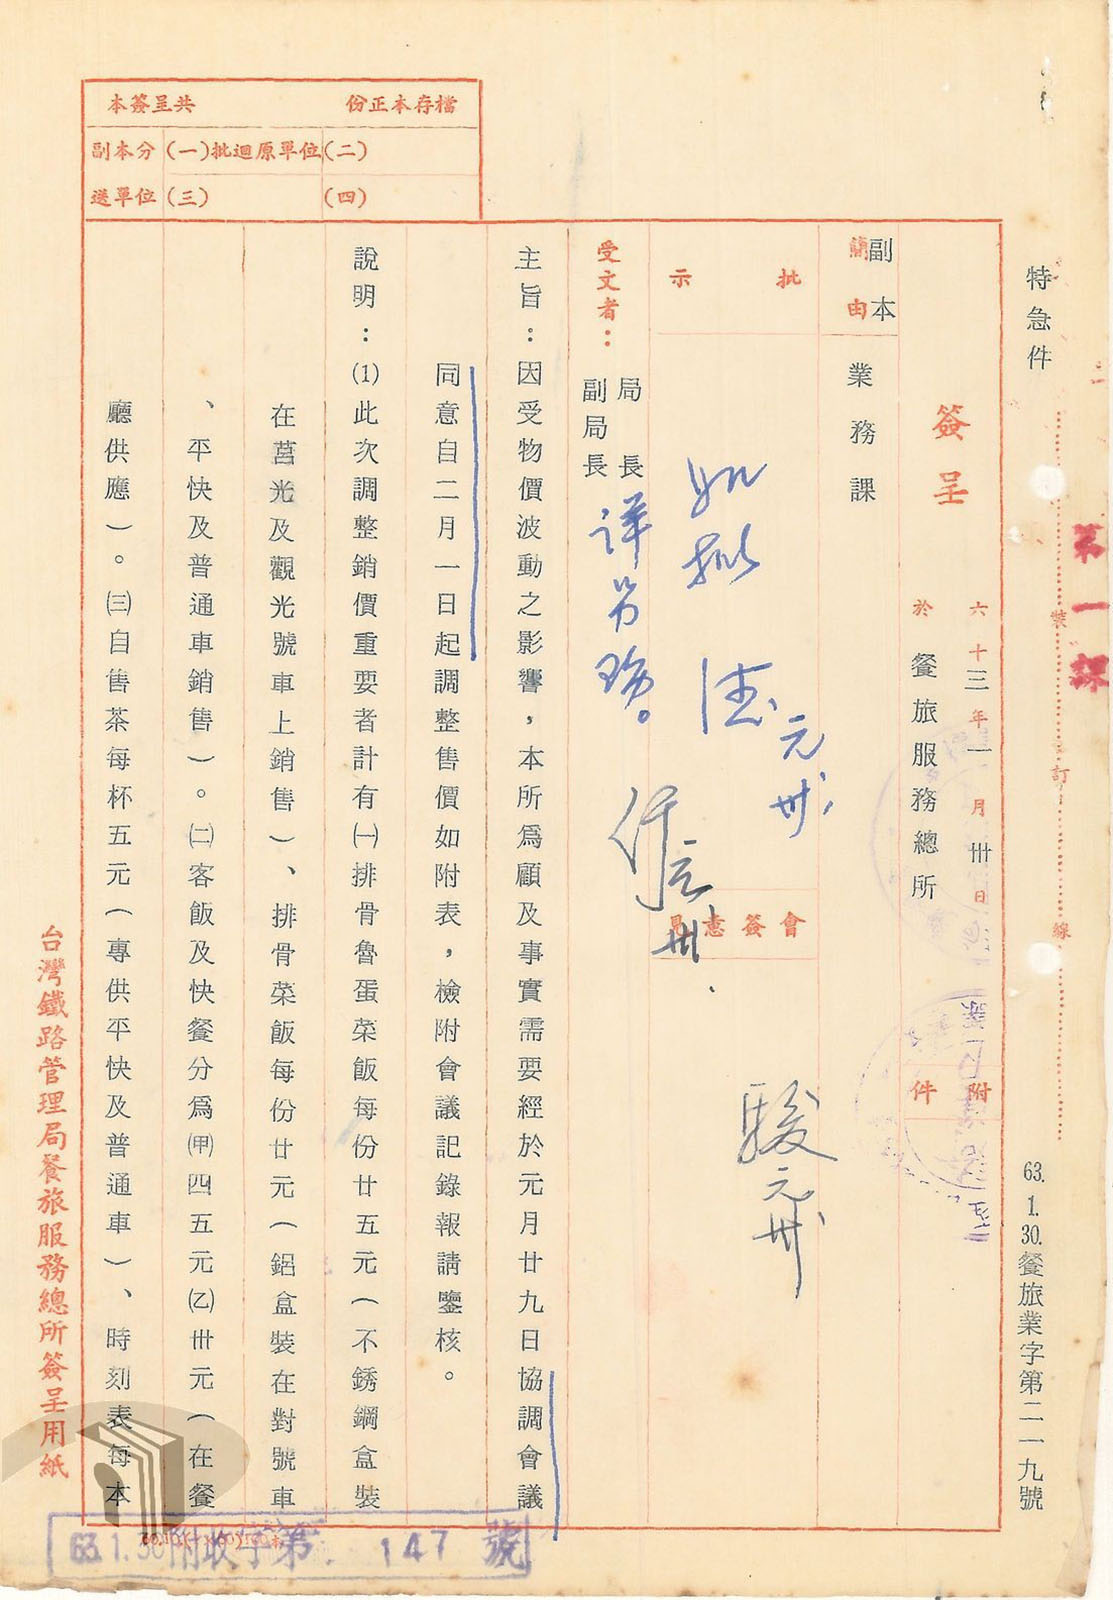 特急件
63.1.30.餐旅業字第二一九號
第一課
裝
訂
線
簽呈
六十三年一月卅日
於餐旅服務總所
附件
副本
簡由
業務課
批示
如批
元卅
會簽意見
駿元卅
受文者：
局長
副局長
元卅
主旨：因受物價波動之影響，本所爲顧及事實需要經於元月廿九日協調會議
同意自二月一日起調整售價如附表，檢附會議記錄報請鑒核。
說明：⑴此次調整銷價重要者計有㈠排骨魯蛋菜飯每份廿五元（不銹鋼盒裝
在莒光及觀光號車上銷售）、排骨菜飯每份廿元（鋁盒裝在對號車
、平快及普通車銷售）。㈡客飯及快餐分爲㈙四五元㈚卅元（在餐
廳供應）。㈢自售茶每杯五元（專供平快及普通車）、時刻表每本
本簽呈共 份正本存檔
副本分送單位
(一)批迴原單位
(二)
(三)
(四)
台灣鐵路管理局餐旅服務總所簽呈用紙
63.1.30附收字第147號